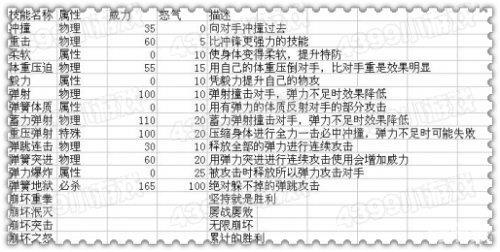 技能名称 属性 威力 怒气 描述
冲撞 物理 35 0 向对手冲撞过去
重击 物理 60 5 比冲锋更强力的技能
柔软 属性 0 10 使身体变得柔软，提升特防
体重压迫 物理 55 15 用自己的体重压倒对手，比对手重是效果明显
毅力 属性 0 10 凭毅力提升自己的物攻
弹射 物理 100 10 弹射撞击对手，弹力不足时效果降低
弹簧体质 属性 0 10 用有弹力的体质反射对手的部分攻击
蓄力弹射 物理 110 20 蓄力弹射撞击对手，弹力不足时效果降低
重压弹射 特殊 100 20 压缩身体进行全力一击必中冲撞，弹力不足时可能失败
弹跳连击 物理 30 10 释放全部的弹力进行连续攻击
弹簧突进 物理 60 20 用弹力突进进行连续攻击使用会增加威力
弹力爆炸 属性 0 25 被攻击时释放所以弹力攻击对手
弹簧地狱 必杀 165 100 绝对躲不掉的弹跳攻击
崩坏重拳 坚持就是胜利
崩坏泯灭 屡战屡败
崩坏突击 无限崩坏
崩坏之怒 累计的胜利